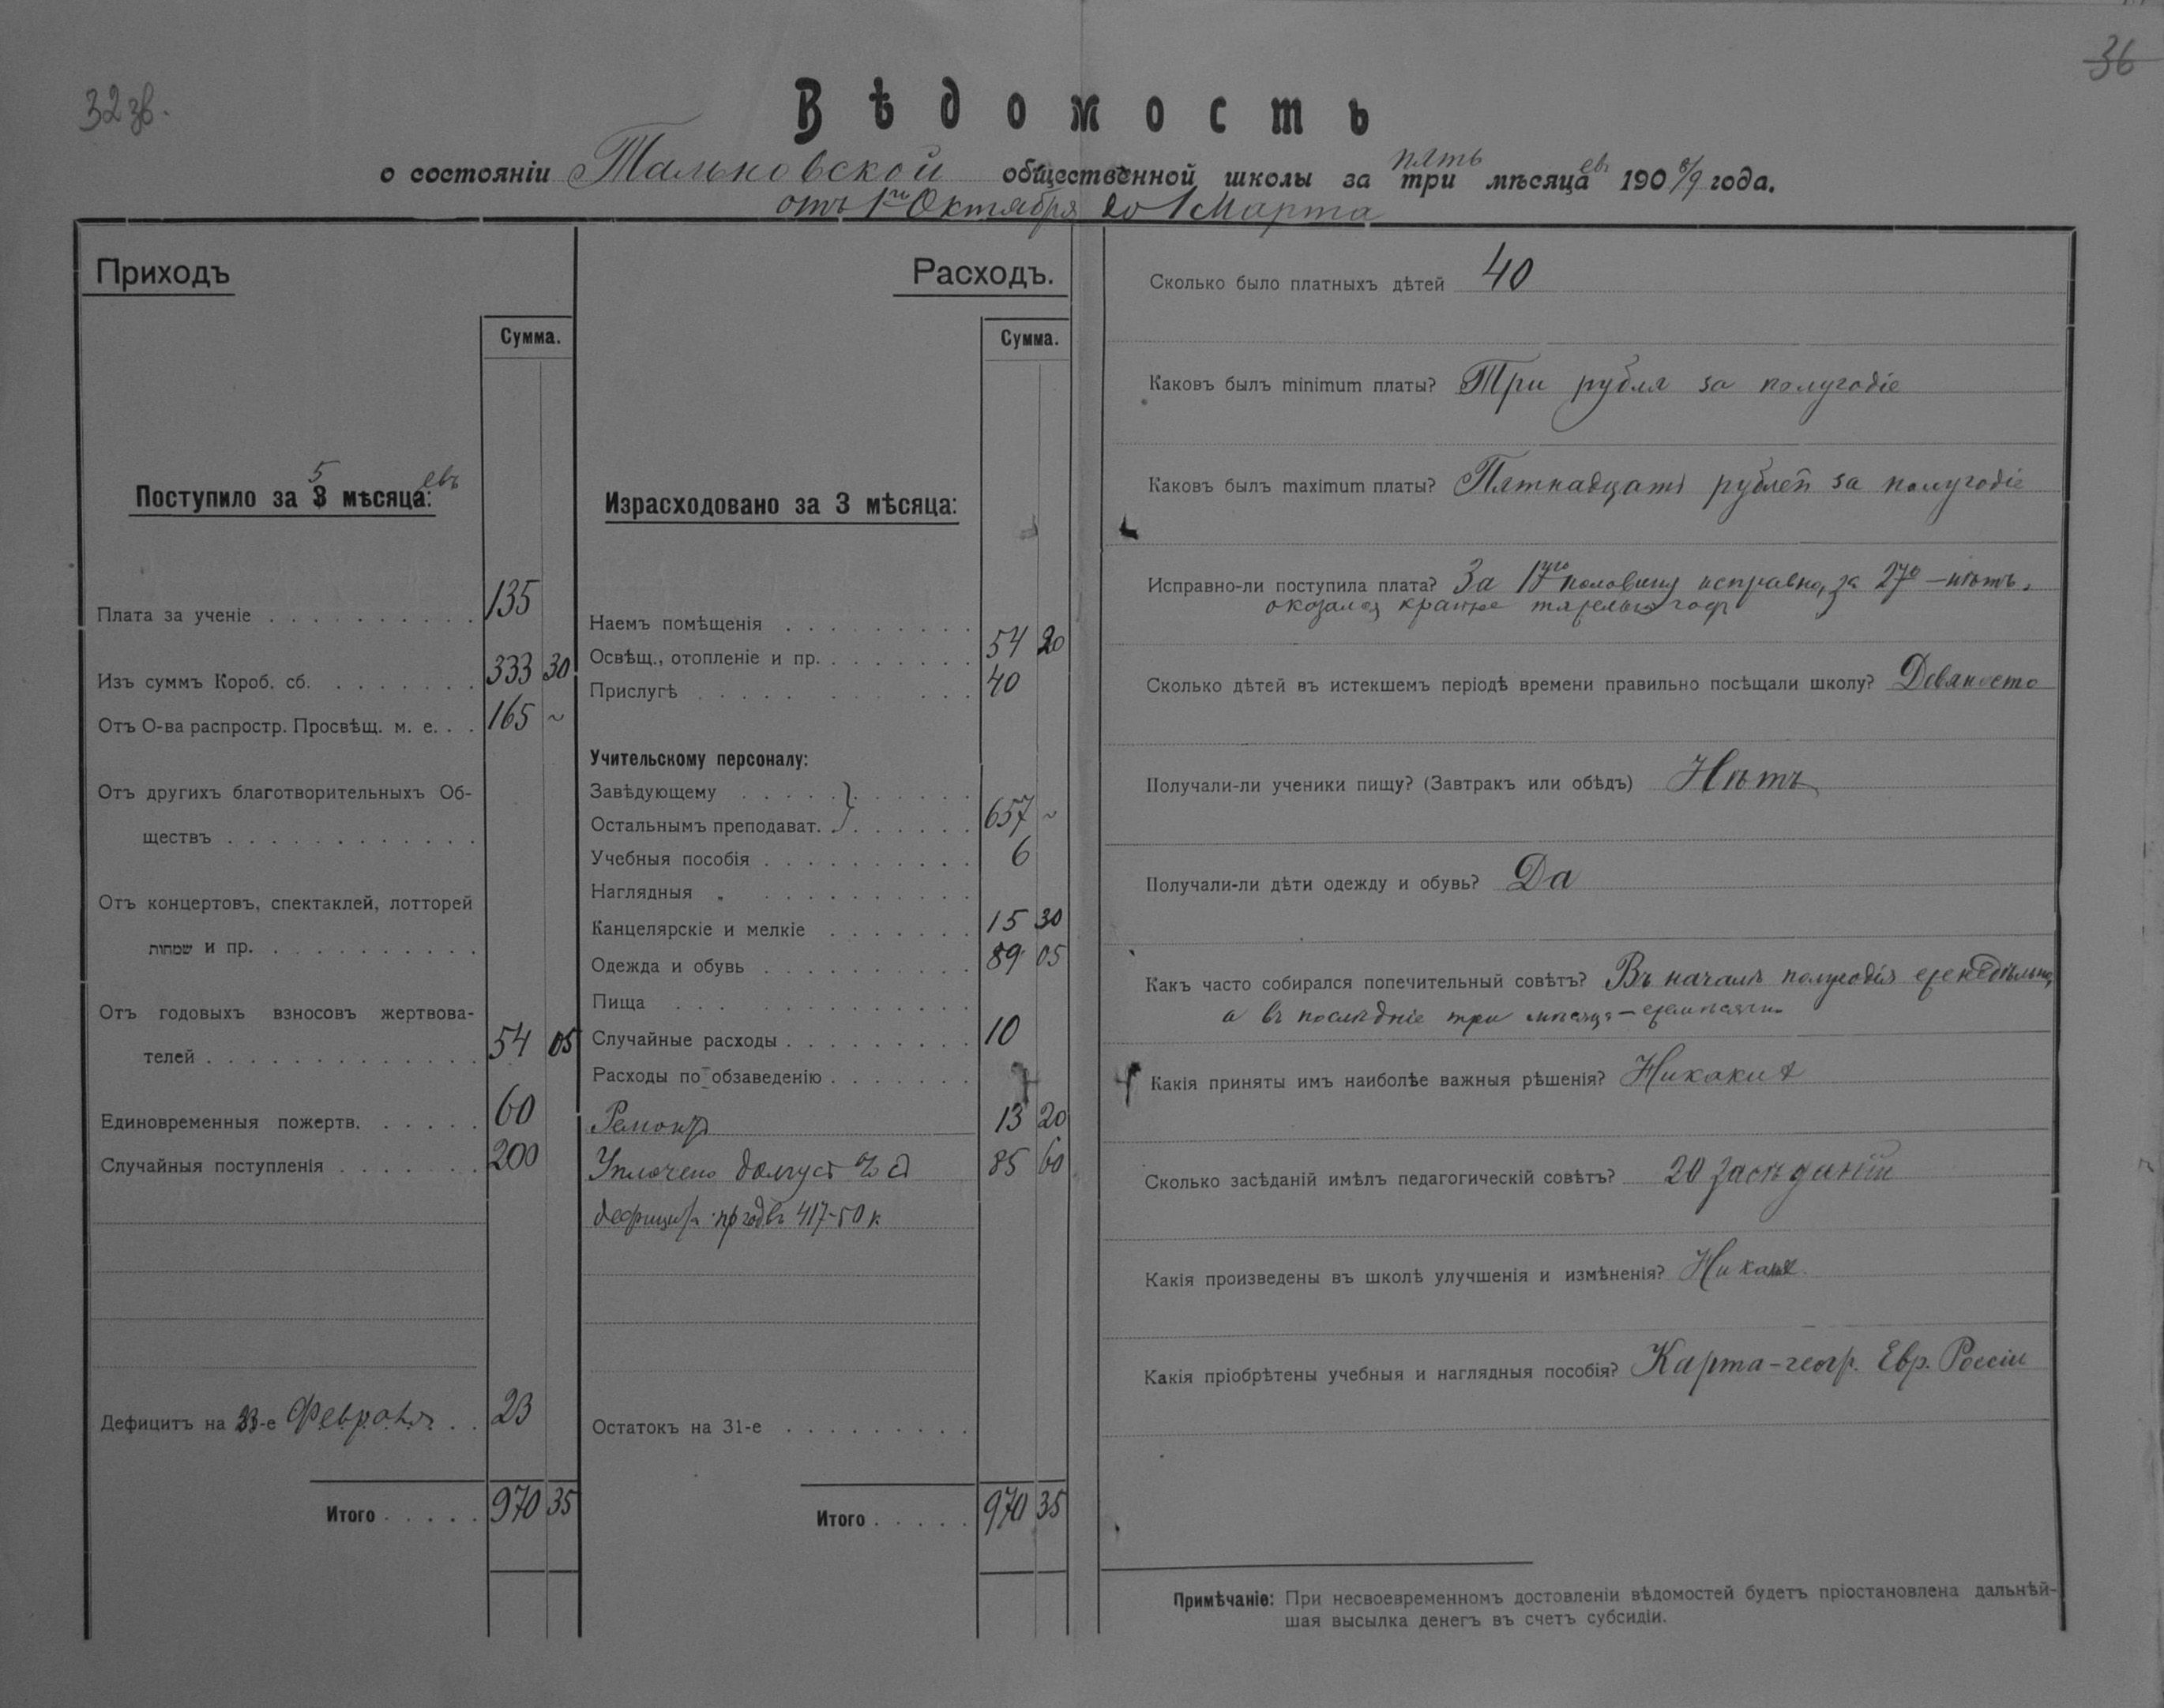 36
32 зв.
Вѣдомость
о состоянiи Тальновской общественной школы за пять три мѣсяцаевъ 1908/9 года.
отъ 1го Октября до 1 Марта
Приходъ
Сумма.
Поступило за 5 3 мѣсяцаевъ:
Плата за ученiе . . . . . . . . . . 135
Изъ суммъ Короб. сб. . . . . . . . 333 30
Отъ О-ва распростр. Просвѣщ. м. е. . . 165 ~
Отъ другихъ благотворительныхъ Об-
ществъ . . . . . . . . . . . .
Отъ концертовъ, спектаклей, лотторей
שמחות и пр. . . . . . . . . . . .
Отъ годовыхъ взносовъ жертвова-
телей . . . . . . . . . . . . . 54 05
Единовременныя пожертв. . . . . . 60
Случайныя поступленiя . . . . . . . 200
Дефицитъ на 23-е Февраля . . 23
Итого . . . . . 970 35
Расходъ.
Сумма.
Израсходовано за 3 мѣсяца:
Наемъ помѣщенiя . . . . . . . . .
Освѣщ., отопленiе и пр. . . . . . . . 54 20
Прислугѣ . . . . . . . . . 40
Учительскому персоналу:
Завѣдующему . . . . . . . . . .
Остальнымъ преподават. . . . . . . . 657 ~
Учебныя пособiя . . . . . . . . . . 6
Наглядныя „ . . . . . . . . . .
Канцелярскiе и мелкiе . . . . . . . 15 30
Одежда и обувь . . . . . . . . . . 89 05
Пища . . . . . . . . . . . .
Случайные расходы . . . . . . . . . 10
Расходы по обзаведенiю . . . . . . .
Ремонтъ 13 20
Уплочено долгу 85 60
дефицитъ 417-50 к
Остатокъ на 31-е . . . . . . . . .
Итого . . . . . 970 35
Сколько было платныхъ дѣтей 40
Каковъ былъ minimum платы? Три рубля за полугодiе
Каковъ былъ maximum платы? Пятнадцать рублей за полугодiе
Исправно-ли поступила плата? За 1ую половину исправно, за 2ую — нѣтъ,
оказался крайне тяжелый годъ
Сколько дѣтей въ истекшемъ перiодѣ времени правильно посѣщали школу? Девяносто
Получали-ли ученики пищу? (Завтракъ или обѣдъ) Нѣтъ
Получали-ли дѣти одежду и обувь? Да
Какъ часто собирался попечительный совѣтъ? Въ началѣ полугодiя еженедѣльно,
а въ послѣднiе три мѣсяца — ежемѣсячно
Какiя приняты имъ наиболѣе важныя рѣшенiя? Никакия
Сколько засѣданiй имѣлъ педагогическiй совѣтъ? 20 засѣданiй
Какiя произведены въ школѣ улучшенiя и измѣненiя? Никакiя
Какiя прiобрѣтены учебныя и наглядныя пособiя? Карта-геогр. Евр. Россiи
Примѣчанiе: При несвоевременномъ достовленiи вѣдомостей будетъ прiостановлена дальнѣй-
шая высылка денегъ въ счетъ субсидiи.